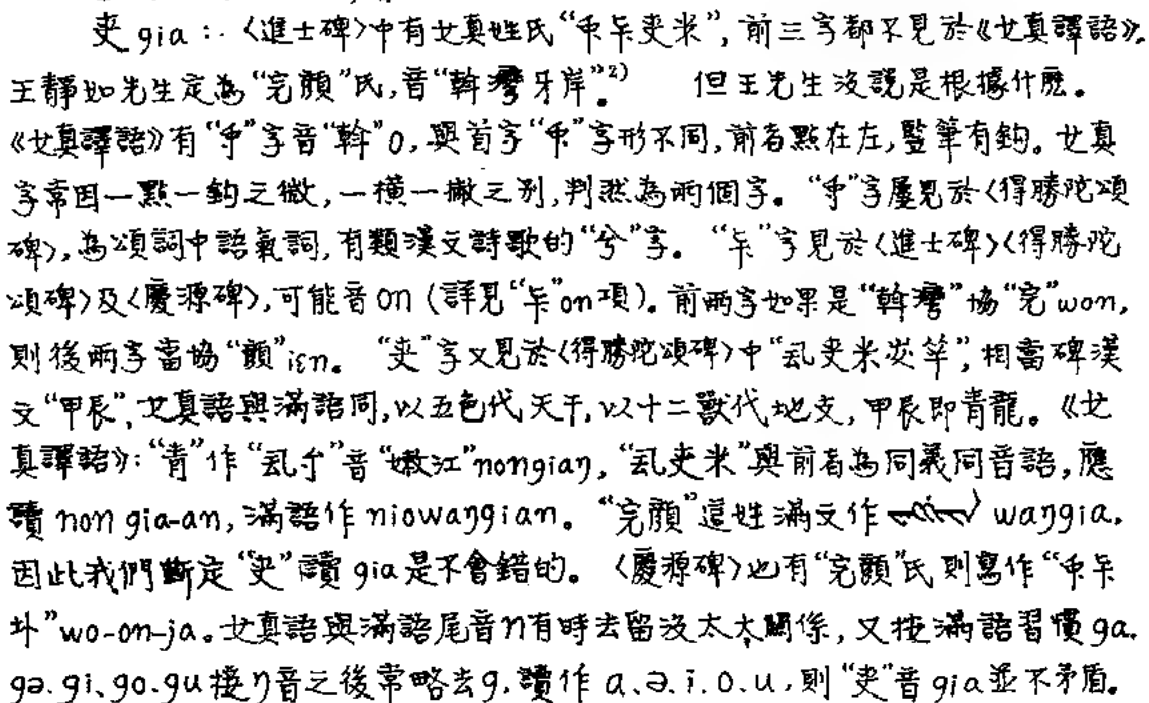 夾 gia：〈進士碑〉中有女真姓氏“夾米”，前三字都不見於《女真譯語》.
王靜如先生定為“完顏”氏，音“斡灣牙岸”。2) 但王先生沒說是根據什麼。
《女真譯語》有“”字音“斡”o，與首字“”字形不同，前者點在左，豎筆有鈎。女真
字常因一點一鈎之微，一橫一撇之別，判然為兩個字。“”字屢見於〈得勝陀頌
碑〉，為頌詞中語氣詞，有類漢文詩歌的“兮”字。“”字見於〈進士碑〉〈得勝陀
頌碑〉及〈慶源碑〉，可能音on（詳見“”on項）。前兩字如果是“斡灣”協“完”won，
則後兩字當協“顏”iɛn。“夾”字又見於〈得勝陀頌碑〉中“夾米”，相當碑漢
文“甲辰”，女真語與滿語同，以五色代天干，以十二獸代地支，甲辰即青龍。《女
真譯語》：“青”作“”音“嫩江”nongiaŋ，“夾米”與前者為同義同音語，應
讀non gia-an，滿語作niowaŋgian。“完顏”這姓滿文作 waŋgia.
因此我們斷定“夾”讀gia是不會錯的。〈慶源碑〉也有“完顏”氏則寫作“
”wo-on-ja。女真語與滿語尾音n有時去留沒太大關係，又按滿語習慣ga.
gə.gi、go.gu接ŋ音之後常略去g，讀作 a.ə.i.o.u，則“夾”音gia並不矛盾。